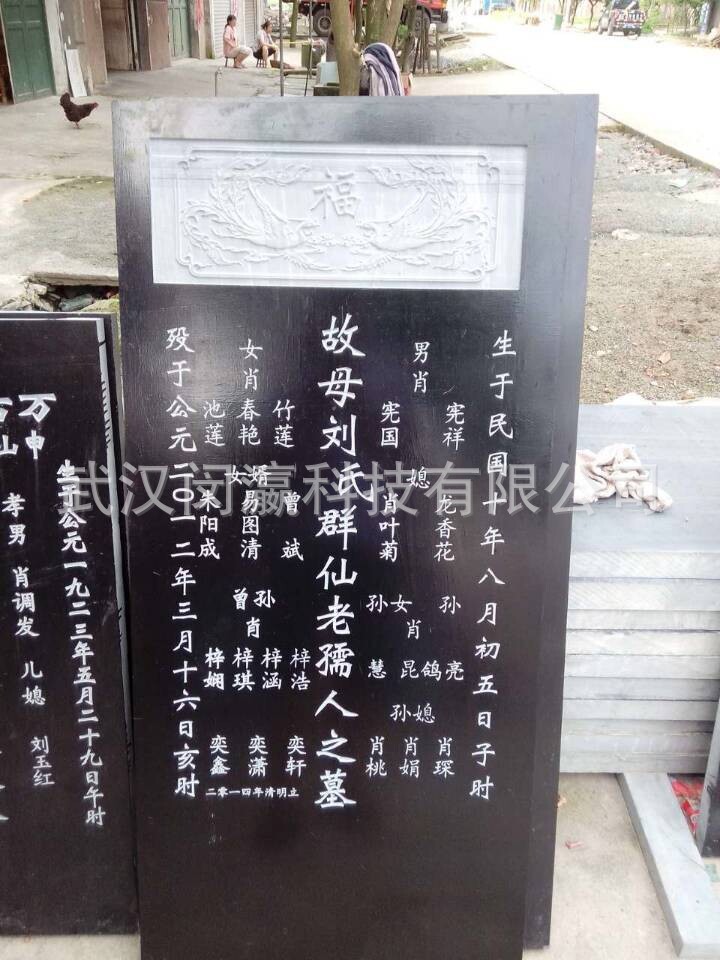 福
生于民国十年八月初五日子时
男肖
宪祥
宪国
媳
龙香花
肖叶菊
孙
孙女
肖
亮
鸽
昆
慧
孙媳
肖琛
肖娟
肖桃
故母刘氏群仙老孺人之墓
女肖
竹莲
春艳
池莲
女婿
曾斌
易图清
朱阳成
曾孙
肖
梓浩
梓涵
梓琪
梓娴
奕轩
奕潇
奕鑫
二零一四年清明立
殁于公元二〇一二年三月十六日亥时
生于公元一九二三年五月二十九日午时
万申
孝男
肖调发
儿媳
刘玉红
武汉闵瀛科技有限公司